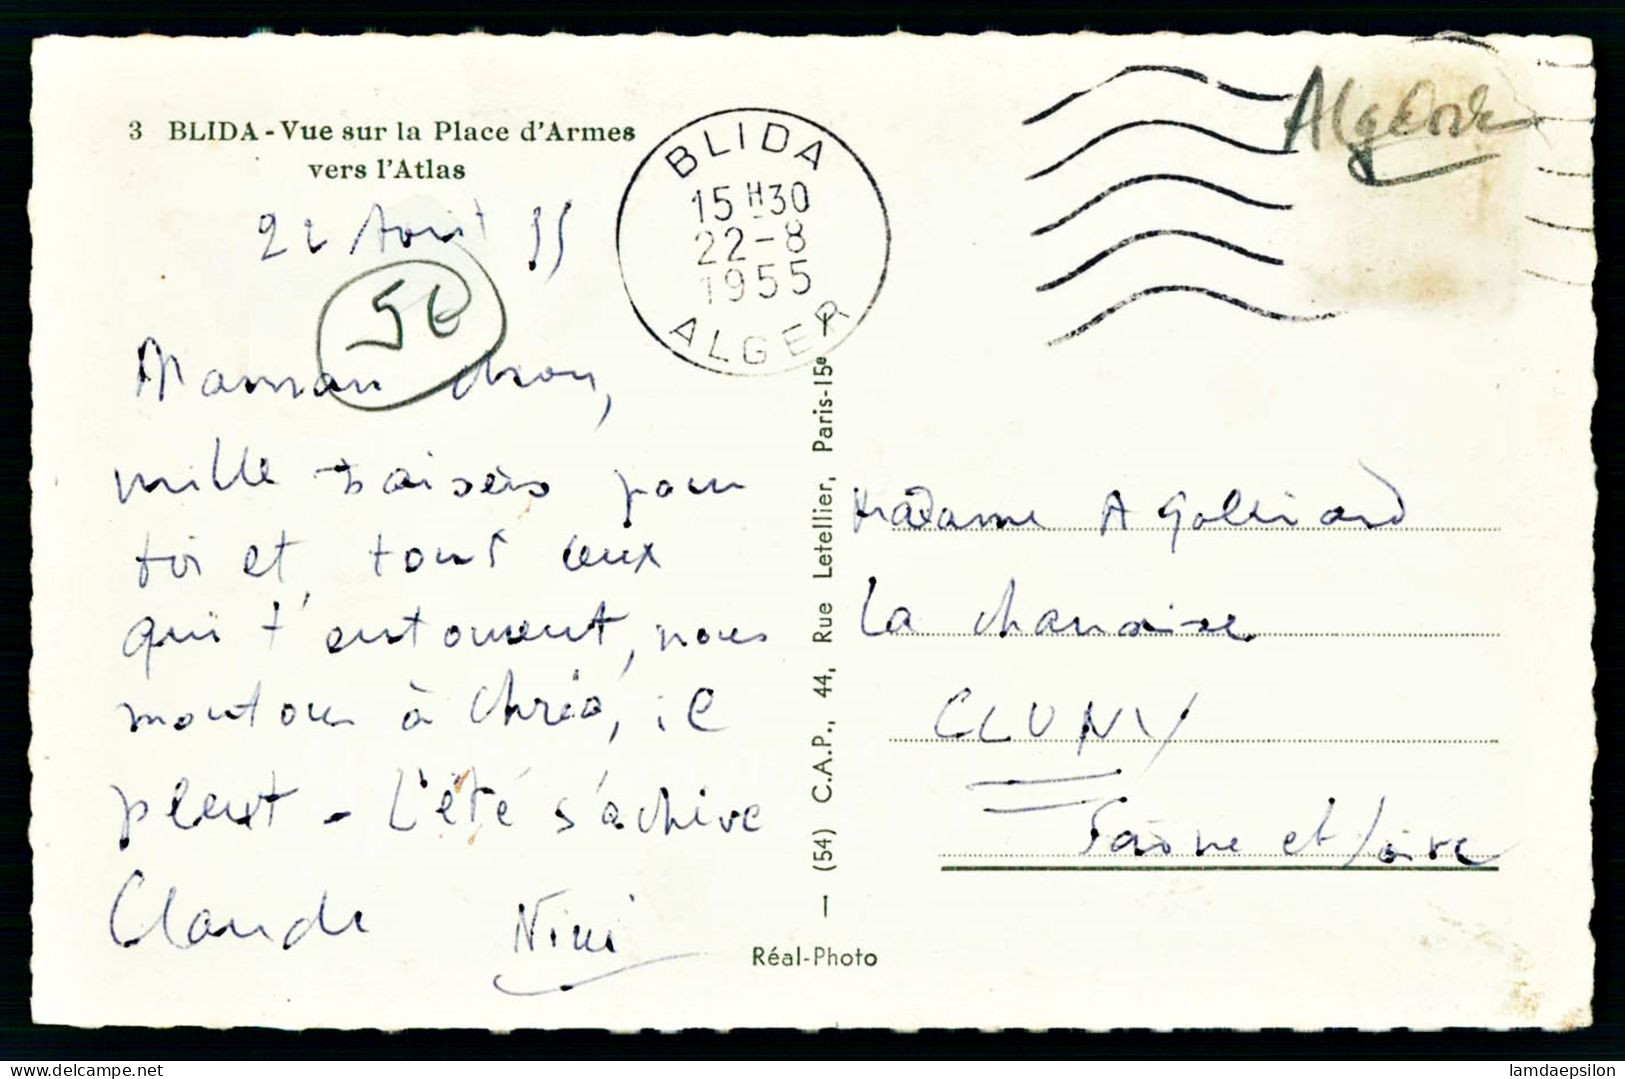 3 BLIDA - Vue sur la Place d'Armes
vers l'Atlas
BLIDA
15 H 30
22-8
1955
ALGER
Algérie
22 Août 55
50
Maman chou,
mille baisers pour
toi et tous ceux
qui t'entourent, nous
montons à Chréa, il
pleut - L'été s'achève
Claude Nini
Madame A
La
CLUNY
Saône et Loire
(54) C.A.P., 44, Rue Letellier, Paris-15e
Réal-Photo
delcampe.net
lamdaepsilon